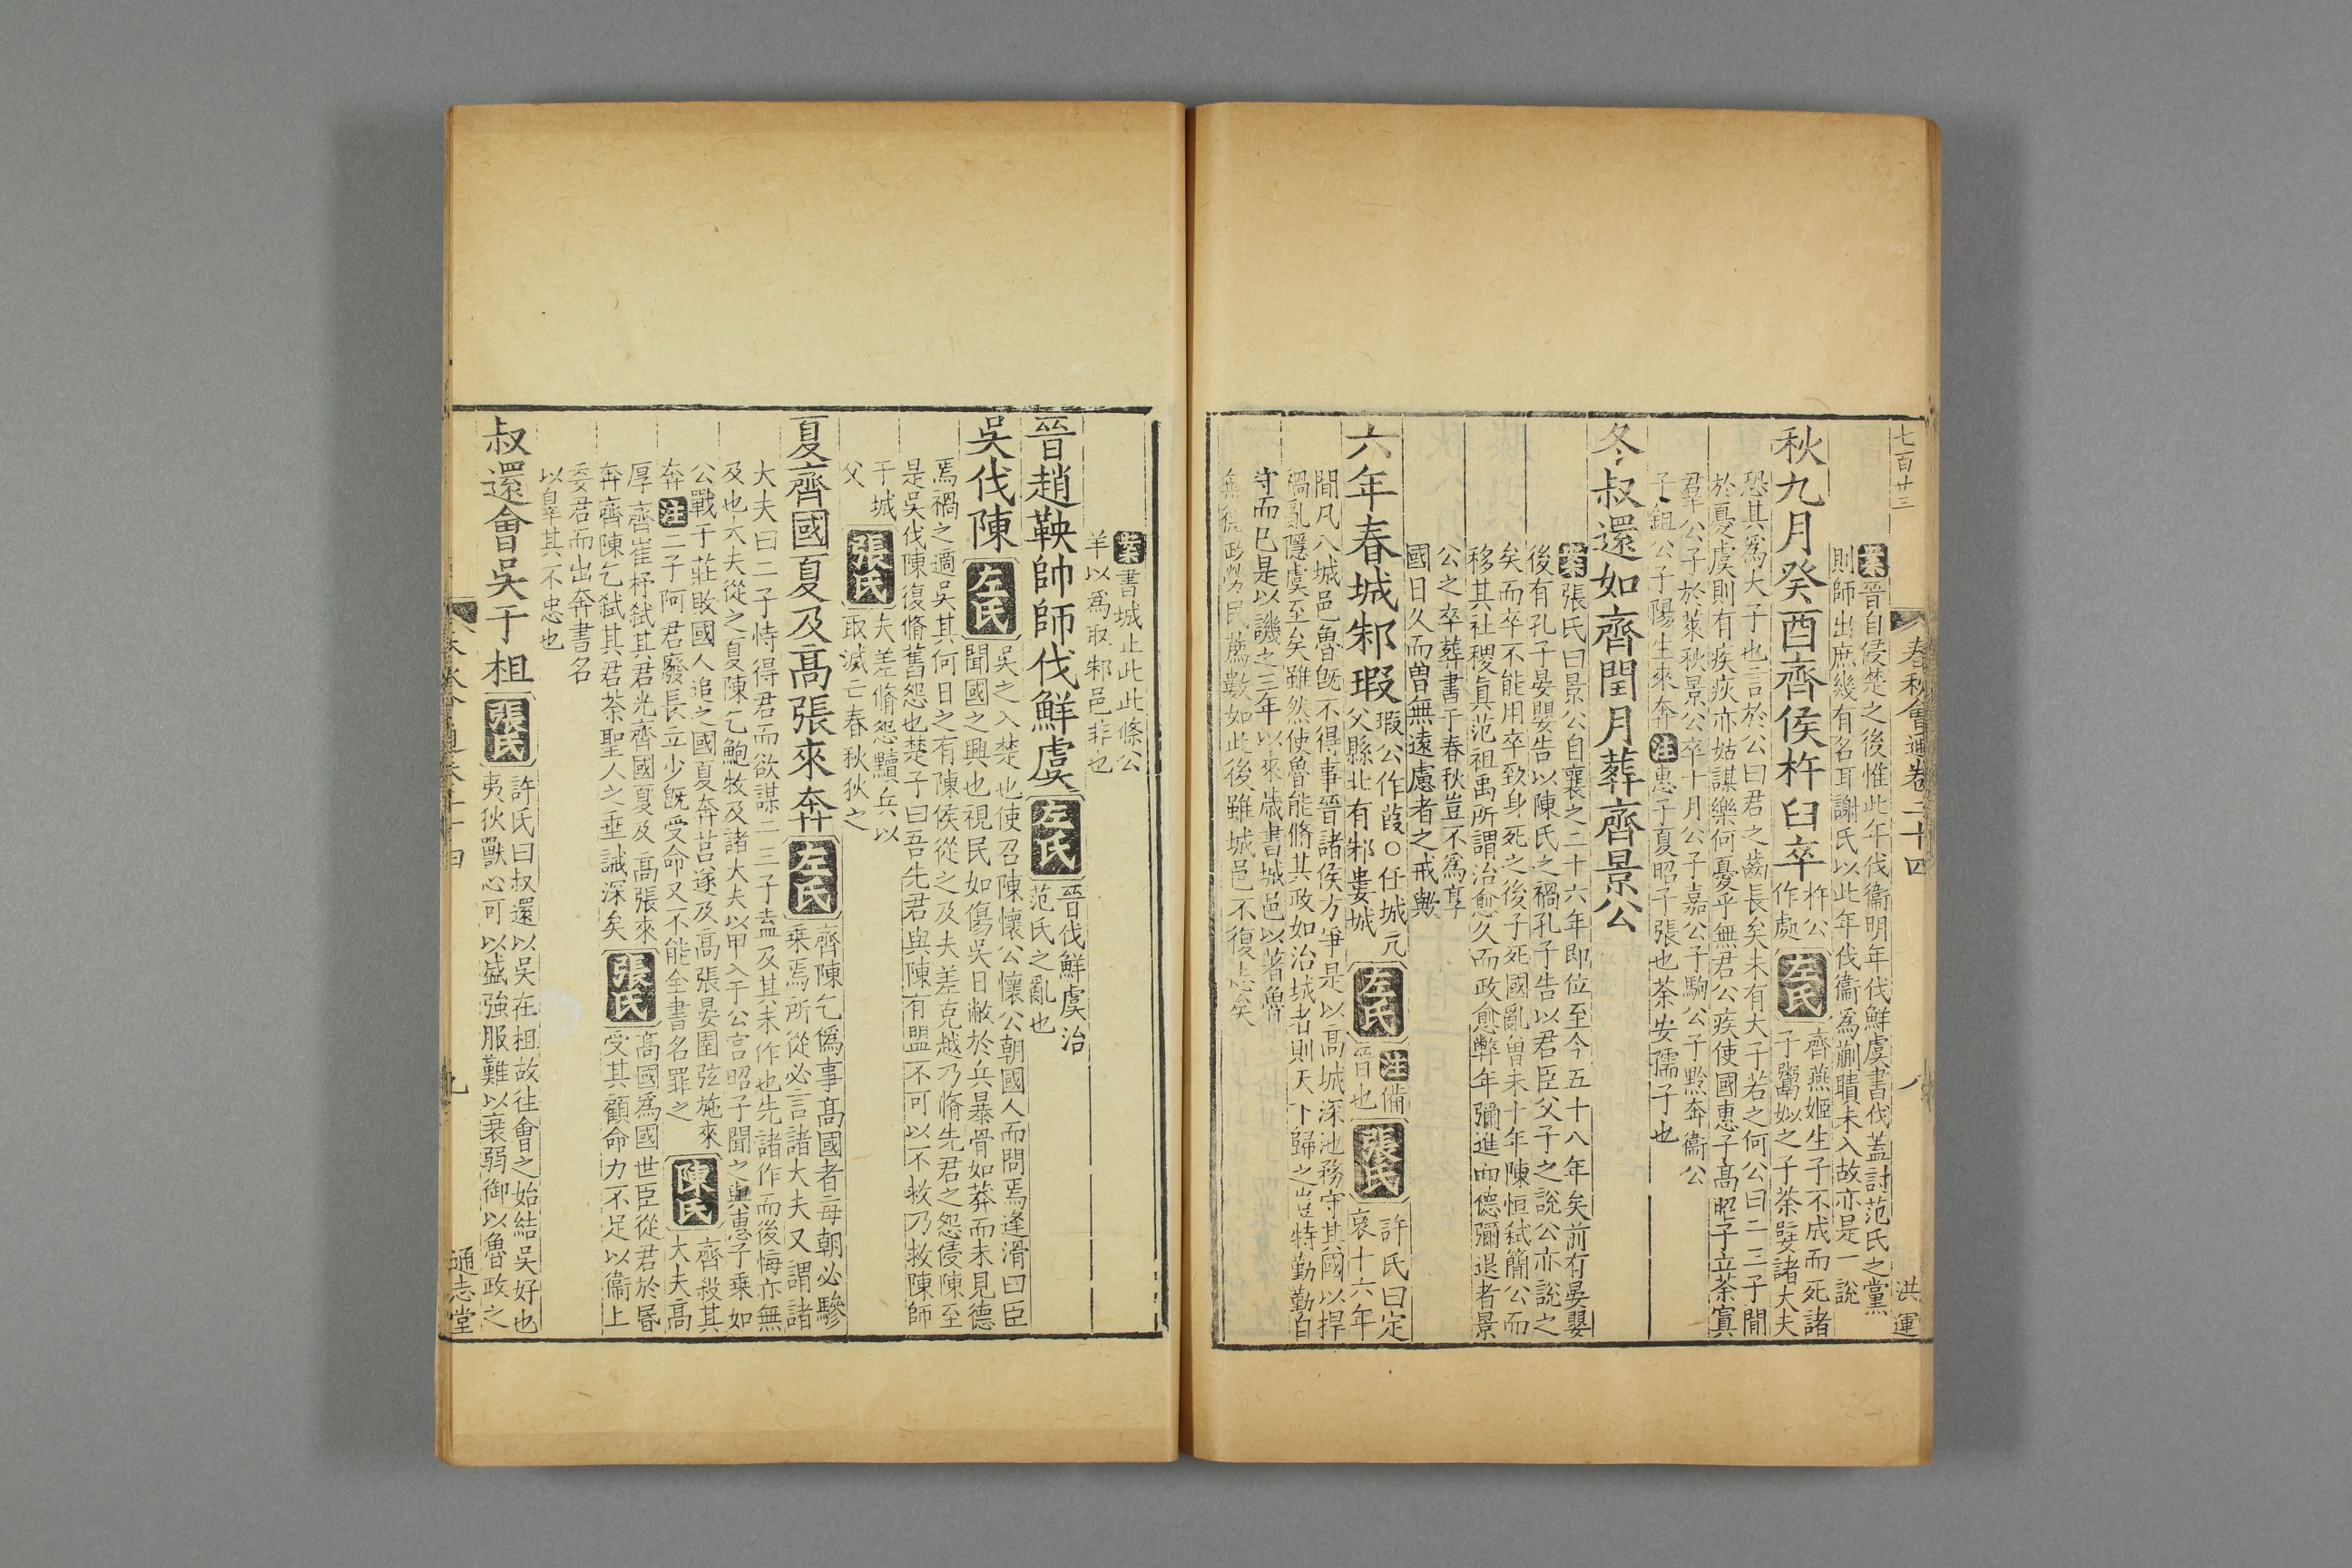 七百廿三
春秋會通卷二十四
洪運
案晉自侵楚之後惟此年伐衞明年伐鮮虞書伐蓋討范氏之黨
則師出庶幾有名耳謝氏以此年伐衞為蒯聵未入故亦是一說
秋九月癸酉齊侯杵臼卒
杵公
作處
左氏
齊燕姬生子不成而死諸
子鬻姒之子荼嬖諸大夫
恐其為大子也言於公曰君之齒長矣未有大子若之何公曰二三子間
於憂虞則有疾疢亦姑謀樂何憂乎無君公疾使國惠子高昭子立荼寘
羣公子於萊秋景公卒十月公子嘉公子駒公子黔奔衞公
子鉏公子陽生來奔注惠子夏昭子張也荼安孺子也
冬叔還如齊閏月葬齊景公
案張氏曰景公自襄之二十六年即位至今五十八年矣前有晏嬰
後有孔子晏嬰告以陳氏之禍孔子告以君臣父子之說公亦說之
矣而卒不能用卒致身死之後子死國亂曾未十年陳恒弒簡公而
移其社稷真范祖禹所謂治愈久而政愈弊年彌進而德彌退者景
公之卒葬書于春秋豈不為享
國日久而曾無遠慮者之戒歟
六年春城邾瑕
瑕公作葭○任城亢
父縣北有邾婁城
左氏
注備
晉也
張氏
許氏曰定
哀十六年
間凡八城邑魯旣不得事晉諸侯方爭是以高城深池務守其國以捍
禍亂隱虞至矣雖然使魯能脩其政如治城者則天下歸之豈特勤勤自
守而已是以譏之三年以來歲書城邑以著魯
無德政勞民薦數如此後雖城邑不復志矣
案書城止此此條公
羊以為取邾邑非也
晉趙鞅帥師伐鮮虞
左氏
晉伐鮮虞治
范氏之亂也
吳伐陳
左氏
吳之入楚也使召陳懷公懷公朝國人而問焉逢滑曰臣
聞國之興也視民如傷吳日敝於兵暴骨如莽而未見德
焉禍之適吳其何日之有陳侯從之及夫差克越乃脩先君之怨侵陳至
是吳伐陳復脩舊怨也楚子曰吾先君與陳有盟不可以不救乃救陳師
于城
父
張氏
夫差脩怨黷兵以
取滅亡春秋狄之
夏齊國夏及高張來奔
左氏
齊陳乞僞事高國者每朝必驂
乘焉所從必言諸大夫又謂諸
大夫曰二子恃得君而欲謀二三子盍及其未作也先諸作而後悔亦無
及也大夫從之夏陳乞鮑牧及諸大夫以甲入于公宮昭子聞之與惠子乘如
公戰于莊敗國人追之國夏奔莒遂及高張晏圉弦施來
奔注二子阿君廢長立少旣受命又不能全書名罪之
陳氏
齊殺其
大夫高
厚齊崔杼弒其君光齊國夏及高張來
奔齊陳乞弒其君荼聖人之垂誡深矣
張氏
高國為國世臣從君於昬
受其顧命力不足以衞上
委君而出奔書名
以辠其不忠也
叔還會吳于柤
張氏
許氏曰叔還以吳在柤故往會之始結吳好也
夷狄獸心可以盛強服難以衰弱御以魯政之
九
通志堂